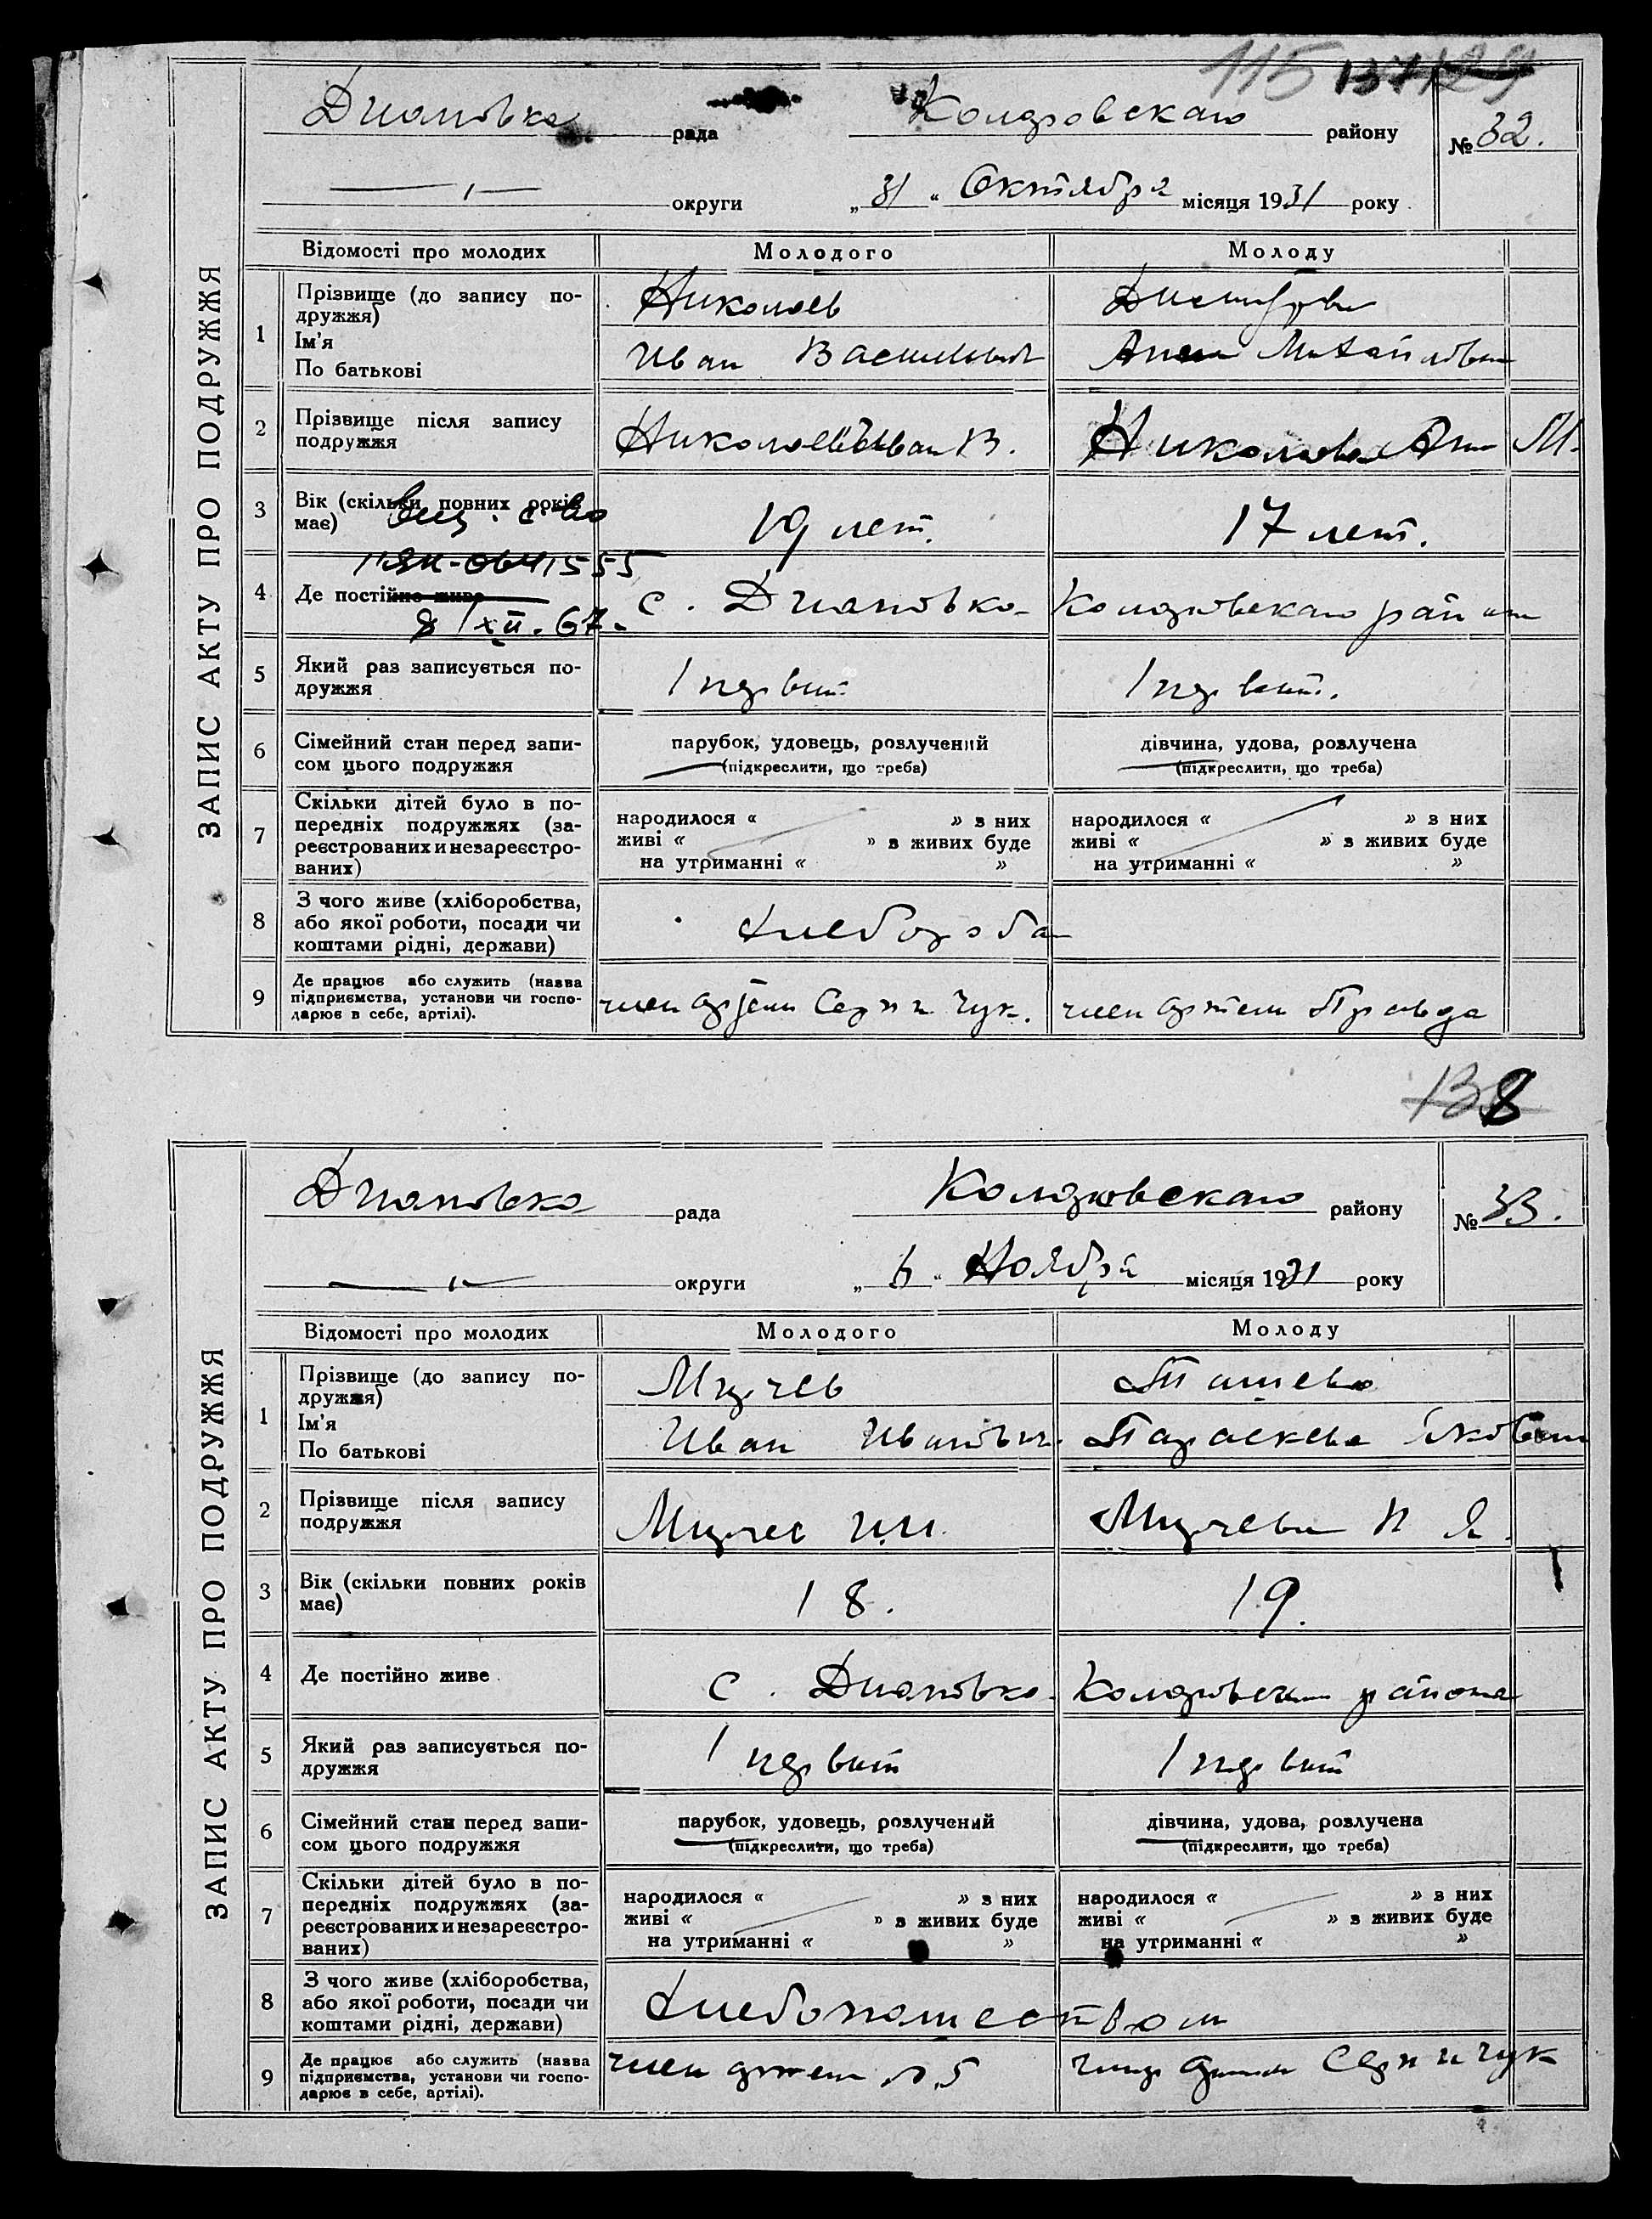 115
Диановка рада Коларовскаго району № 32.
округи „31“ Октября місяця 1931 року
ЗАПИС АКТУ ПРО ПОДРУЖЖЯ
Відомості про молодих Молодого Молоду
1 Прізвище (до запису по-
дружжя)
Ім'я
По батькові
Николаев
Иван Васильевич
Анна Михайловна
2 Прізвище після запису
подружжя
Николаев Иван В. Николаева Анна М.
3 Вік (скільки повних років
має)
19 лет. 17 лет.
4 Де постійно живе
8/XII. 67.
с. Диановка Коларовскаго района
5 Який раз записується по-
дружжя
1 первый 1 первый.
6 Сімейний стан перед запи-
сом цього подружжя
парубок, удовець, розлучений
(підкреслити, що треба)
дівчина, удова, розлучена
(підкреслити, що треба)
7 Скільки дітей було в по-
передніх подружжях (за-
реєстрованих и незареєстро-
ваних)
народилося « » з них
живі « » з живих буде
на утриманні « »
народилося « » з них
живі « » з живих буде
на утриманні « »
8 З чого живе (хліборобства,
або якої роботи, посади чи
коштами рідні, держави)
9 Де працює або служить (назва
підприємства, установи чи госпо-
дарює в себе, артілі).
член артели Серп и Чук. член артели Правда
138
Диановка рада Коларовскаго району № 33.
округи Ноября місяця 1931 року
ЗАПИС АКТУ ПРО ПОДРУЖЖЯ
Відомості про молодих Молодого Молоду
1 Прізвище (до запису по-
дружжя)
Ім'я
По батькові
Мирчев
Иван Иванович
Парасковья Яковевна
2 Прізвище після запису
подружжя
Мирчев И.И. Мирчева П Я.
3 Вік (скільки повних років
має)
18. 19.
4 Де постійно живе
с. Диановка Коларовскаго района
5 Який раз записується по-
дружжя
1 первый 1 первый
6 Сімейний стан перед запи-
сом цього подружжя
парубок, удовець, розлучений
(підкреслити, що треба)
дівчина, удова, розлучена
(підкреслити, що треба)
7 Скільки дітей було в по-
передніх подружжях (за-
реєстрованих и незареєстро-
ваних)
народилося « » з них
живі « » з живих буде
на утриманні « »
народилося « » з них
живі « » з живих буде
на утриманні « »
8 З чого живе (хліборобства,
або якої роботи, посади чи
коштами рідні, держави)
Хлебопашеством
9 Де працює або служить (назва
підприємства, установи чи госпо-
дарює в себе, артілі).
член артели № 5 Серп и Чук